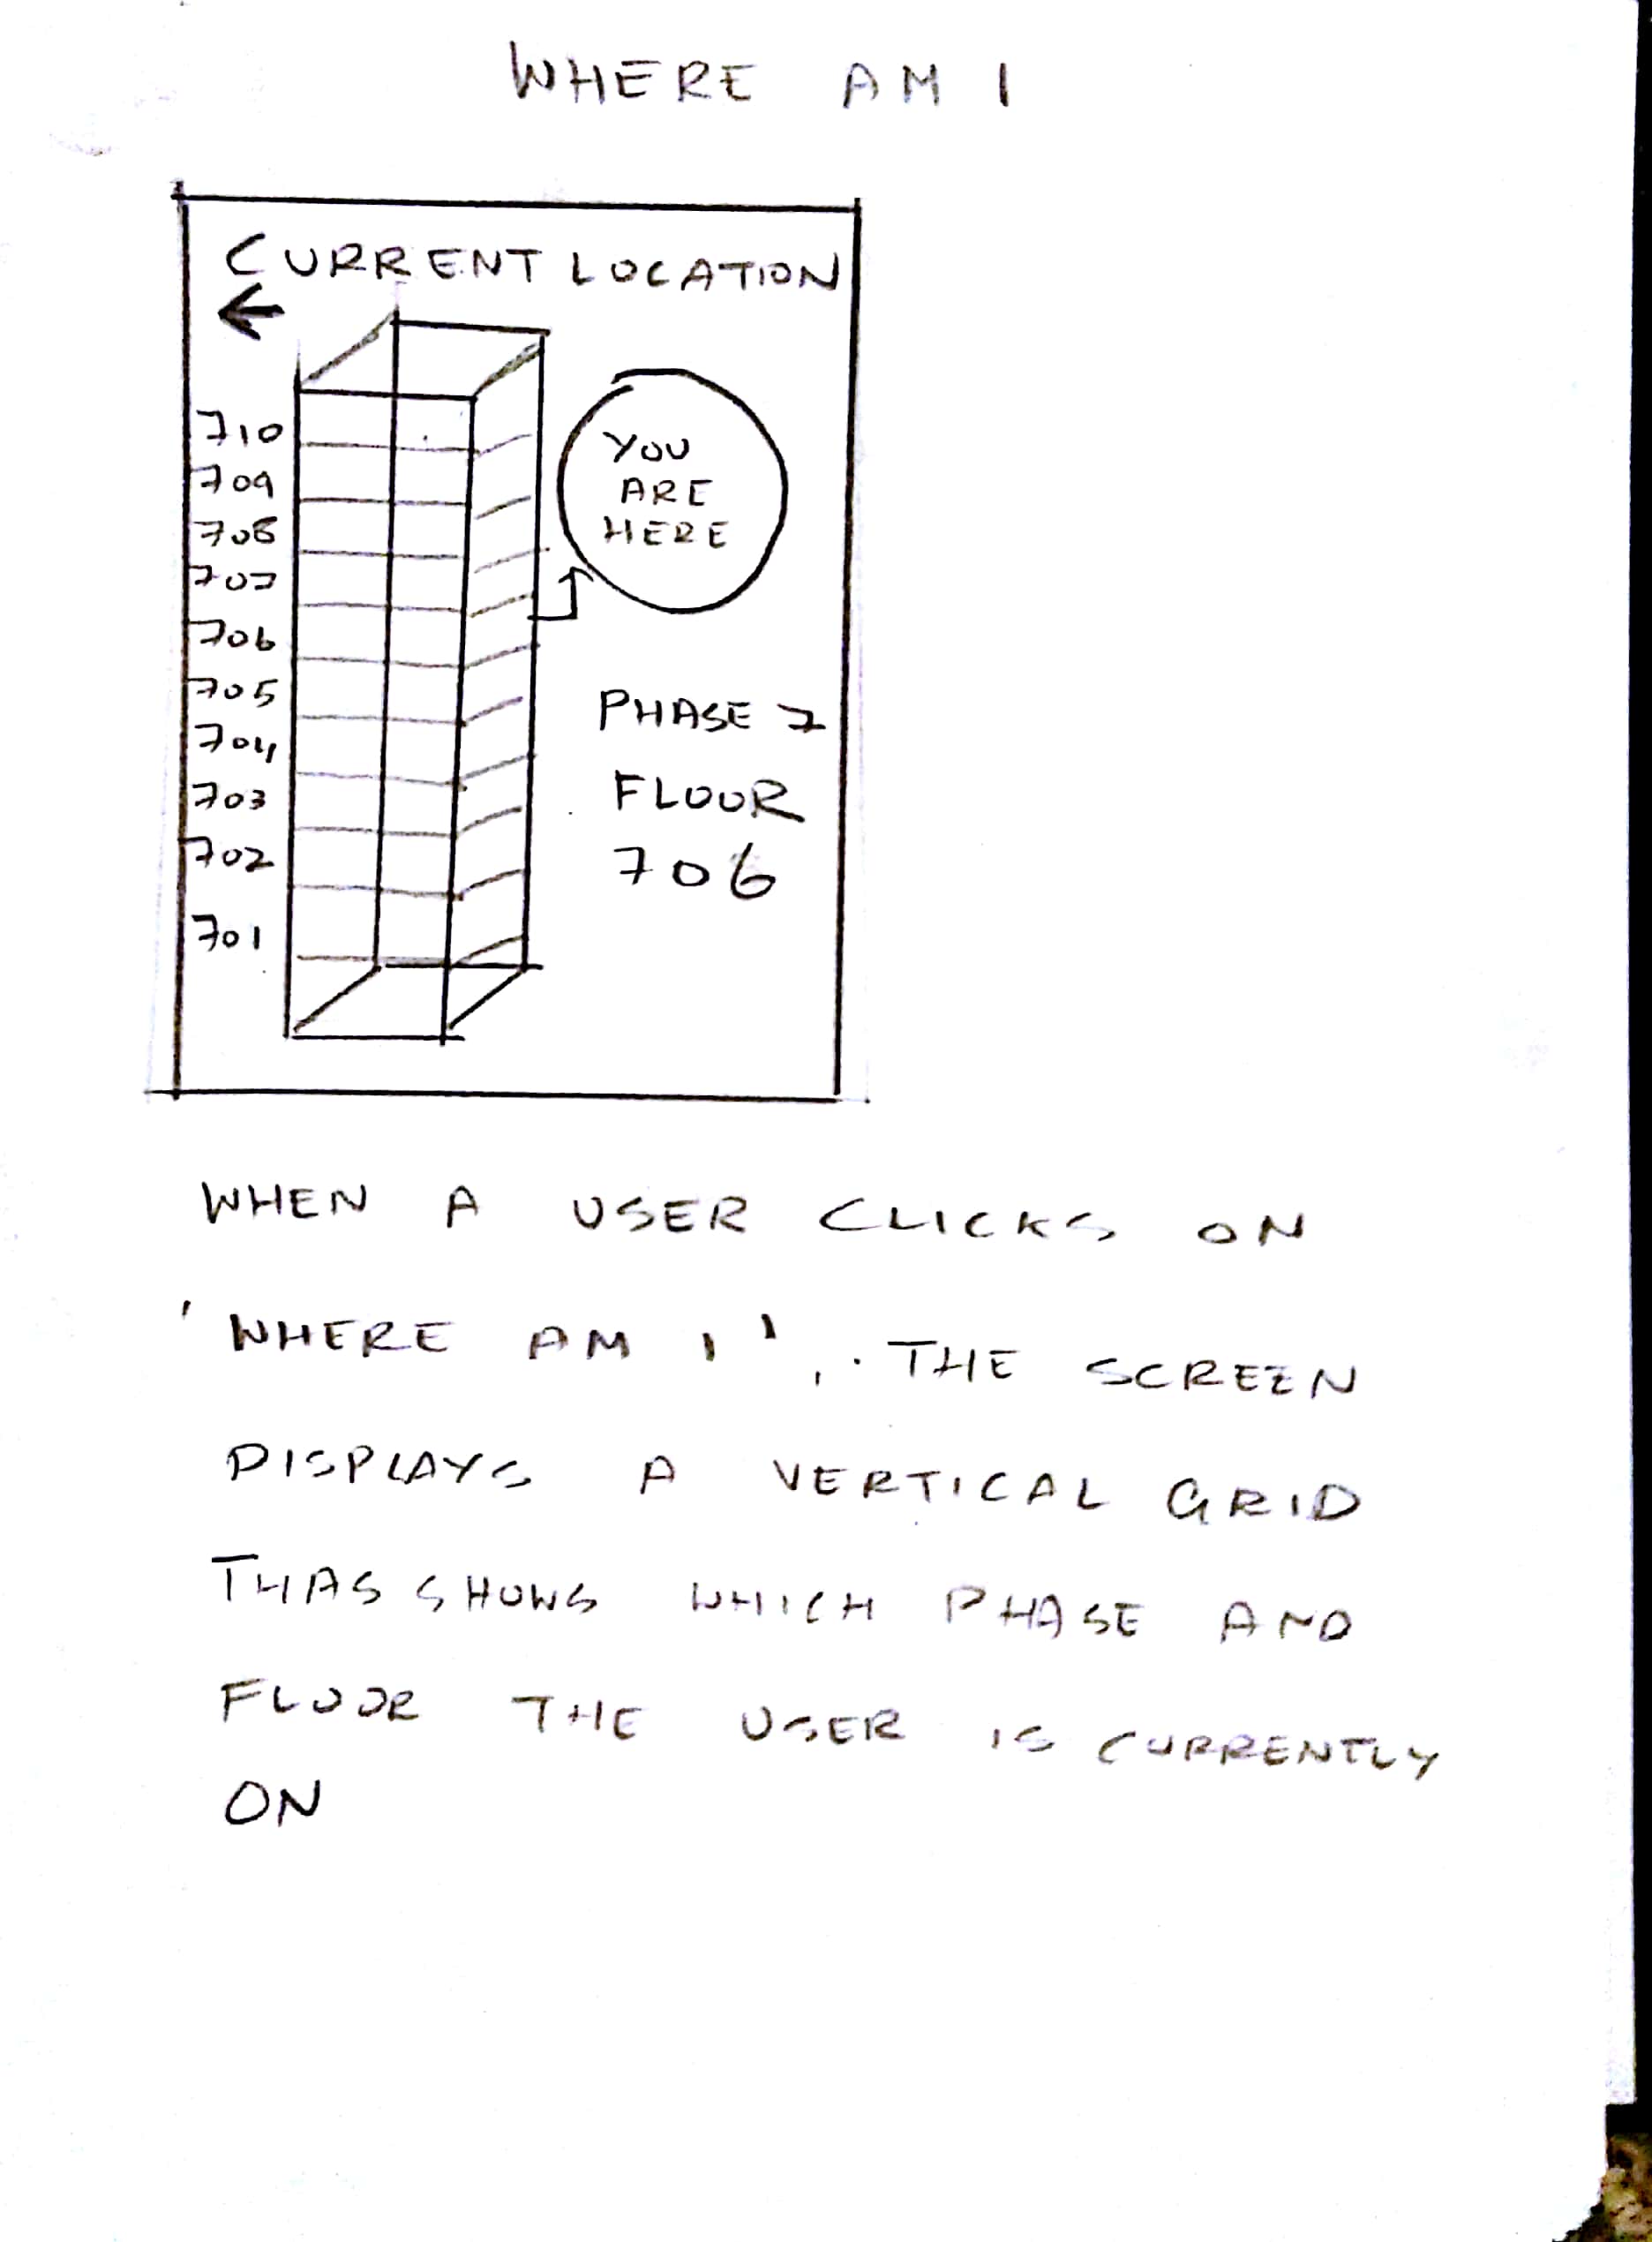 WHERE AM I
CURRENT LOCATION
←
710
709
708
707
706
705
704
703
702
701
YOU
ARE
HERE
PHASE 7
FLOOR
706
WHEN A USER CLICKS ON
'WHERE AM I', THE SCREEN
DISPLAYS A VERTICAL GRID
THAS SHOWS WHICH PHASE AND
FLOOR THE USER IS CURRENTLY
ON